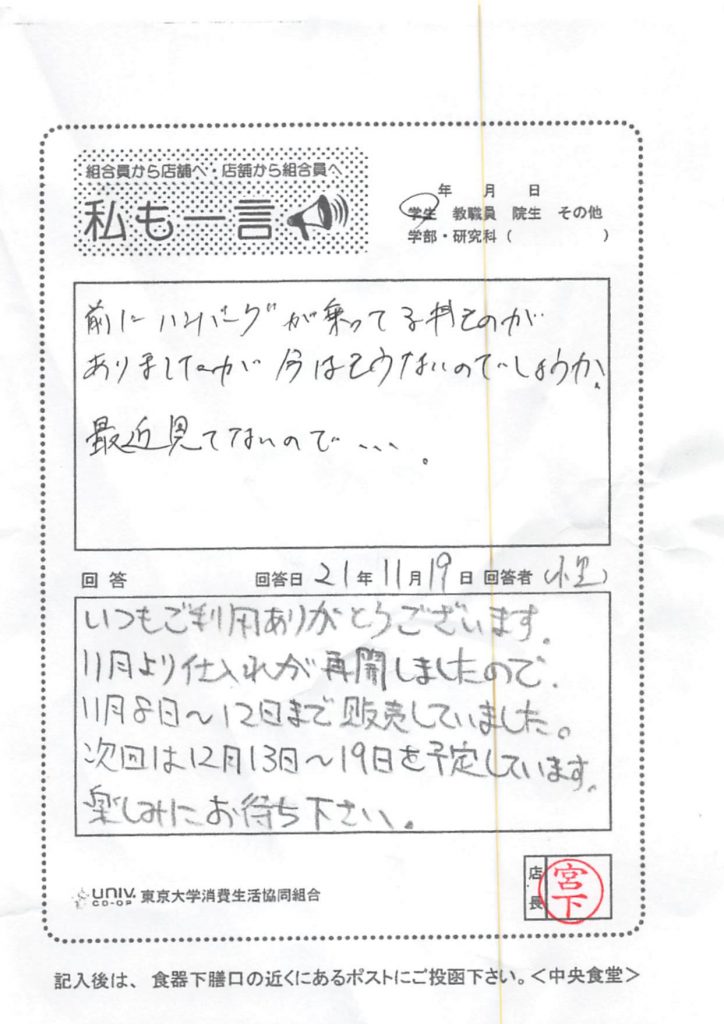 組合員から店舗へ・店舗から組合員へ
私も一言
年 月 日
学生 教職員 院生 その他
学部・研究科( )
前にハンバーグが乗ってる料理のが
ありましたが今はもうないのでしょうか。
最近見てないので…。
回答 回答日 21年11月19日 回答者(小里)
いつもご利用ありがとうございます。
11月より仕入れが再開しましたので、
11月8日~12日まで販売していました。
次回は12月13日~19日を予定しています。
楽しみにお待ち下さい。
UNIV. CO-OP 東京大学消費生活協同組合
店長
宮下
記入後は、食器下膳口の近くにあるポストにご投函下さい。<中央食堂>